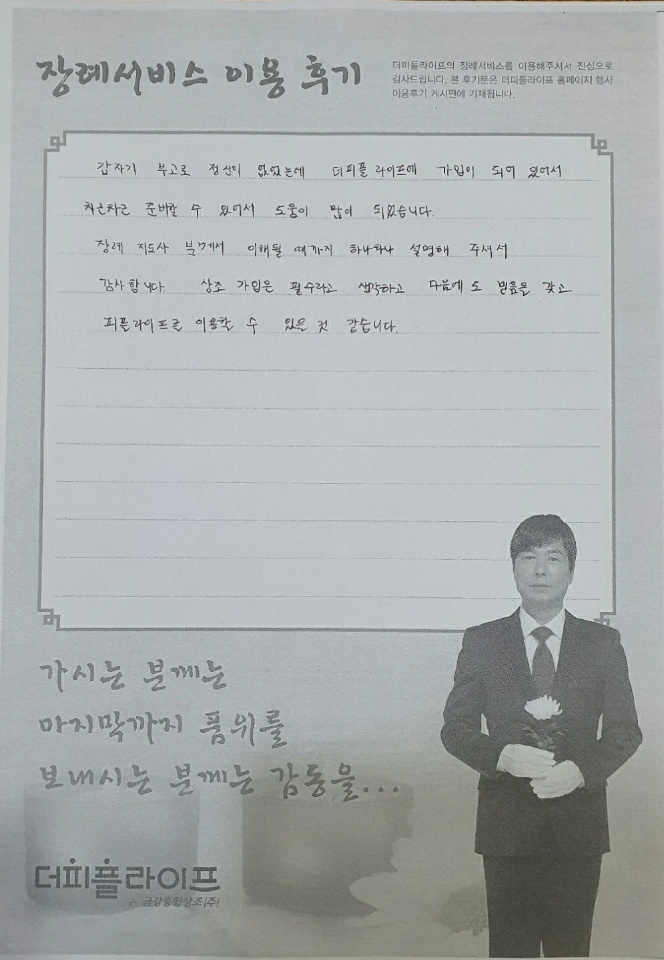 장례서비스 이용 후기
더피플라이프의 장례서비스를 이용해주셔서 진심으로
감사드립니다. 본 후기문은 더피플라이프 홈페이지 행사
이용후기 게시판에 기재됩니다.
갑자기 부고로 정신이 없었는데 더피플 라이프에 가입이 되어 있어서
차근차근 준비할 수 있어서 도움이 많이 되었습니다.
장례 지도사 분께서 이해될 때까지 하나하나 설명해 주셔서
감사합니다. 상조 가입은 필수라고 생각하고 다음에도 믿음을 갖고
피플라이프를 이용할 수 있은 것 같습니다.
가시는 분께는
마지막까지 품위를
보내시는 분께는 감동을...
더피플라이프
구. 금강종합상조(주)